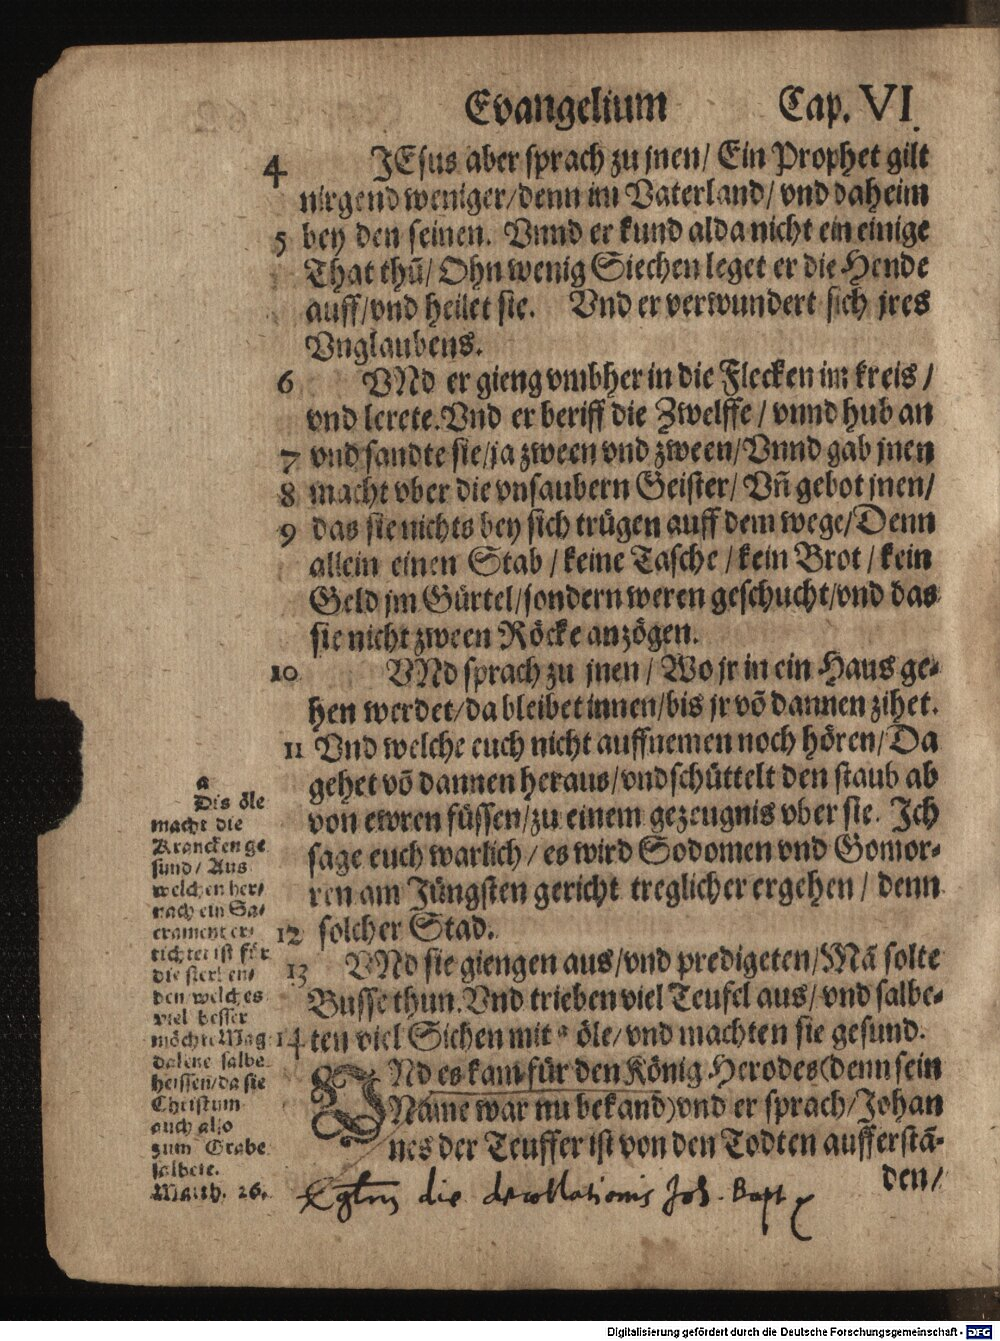 Evangelium Cap. VI.
4 JEsus aber sprach zu jnen/ Ein Prophet gilt
nirgend weniger/denn im Vaterland/ vnd daheim
5 bey den seinen. Vnnd er kund alda nicht ein einige
That thũ/ Ohn wenig Siechen leget er die Hende
auff/vnd heilet sie. Vnd er verwundert sich jres
Vnglaubens.
6 VNd er gieng vmbher in die Flecken im kreis/
vnd lerete. Vnd er beriff die Zwelffe/ vnnd hub an
7 vnd sandte sie/ja zween vnd zween/Vnnd gab jnen
8 macht vber die vnsaubern Geister/ Vñ gebot jnen/
9 das sie nichts bey sich trügen auff dem wege/Denn
allein einen Stab/keine Tasche/kein Brot/kein
Geld jm Gürtel/sondern weren geschucht/vnd das
sie nicht zween Röcke anzögen.
10 VNd sprach zu jnen/ Wo jr in ein Haus ge-
hen werdet/da bleibet innen/bis jr võ dannen zihet.
11 Vnd welche euch nicht auffnemen noch hören/Da
gehet võ dannen heraus/vnd schüttelt den staub ab
von ewren füssen/zu einem gezeugnis vber sie. Ich
sage euch warlich/ es wird Sodomen vnd Gomor-
ren am Jüngsten gericht treglicher ergehen/ denn
12 solcher Stad.
13 VNd sie giengen aus/vnd predigeten/Mã solte
Busse thun. Vnd trieben viel Teufel aus/vnd salbe-
14 ten viel Sichen mit a öle/vnd machten sie gesund.
VNd es kam für den König Herodes(denn sein
Name war nu bekand)vnd er sprach/Johan
nes der Teuffer ist von den Todten aufferstã-
den/
a
Dis öle
macht die
Krancken ge
sund/ Aus
welchen her-
nach ein Sa-
crament er-
tichtet ist für
die sterben-
den welches
viel besser
möchte Mag
dalene salbe
heissen/da sie
Christum
auch also
zum Grabe
salbete.
Matth. 26.
die decollationis Joh. Bapt
Digitalisierung gefördert durch die Deutsche Forschungsgemeinschaft - DFG